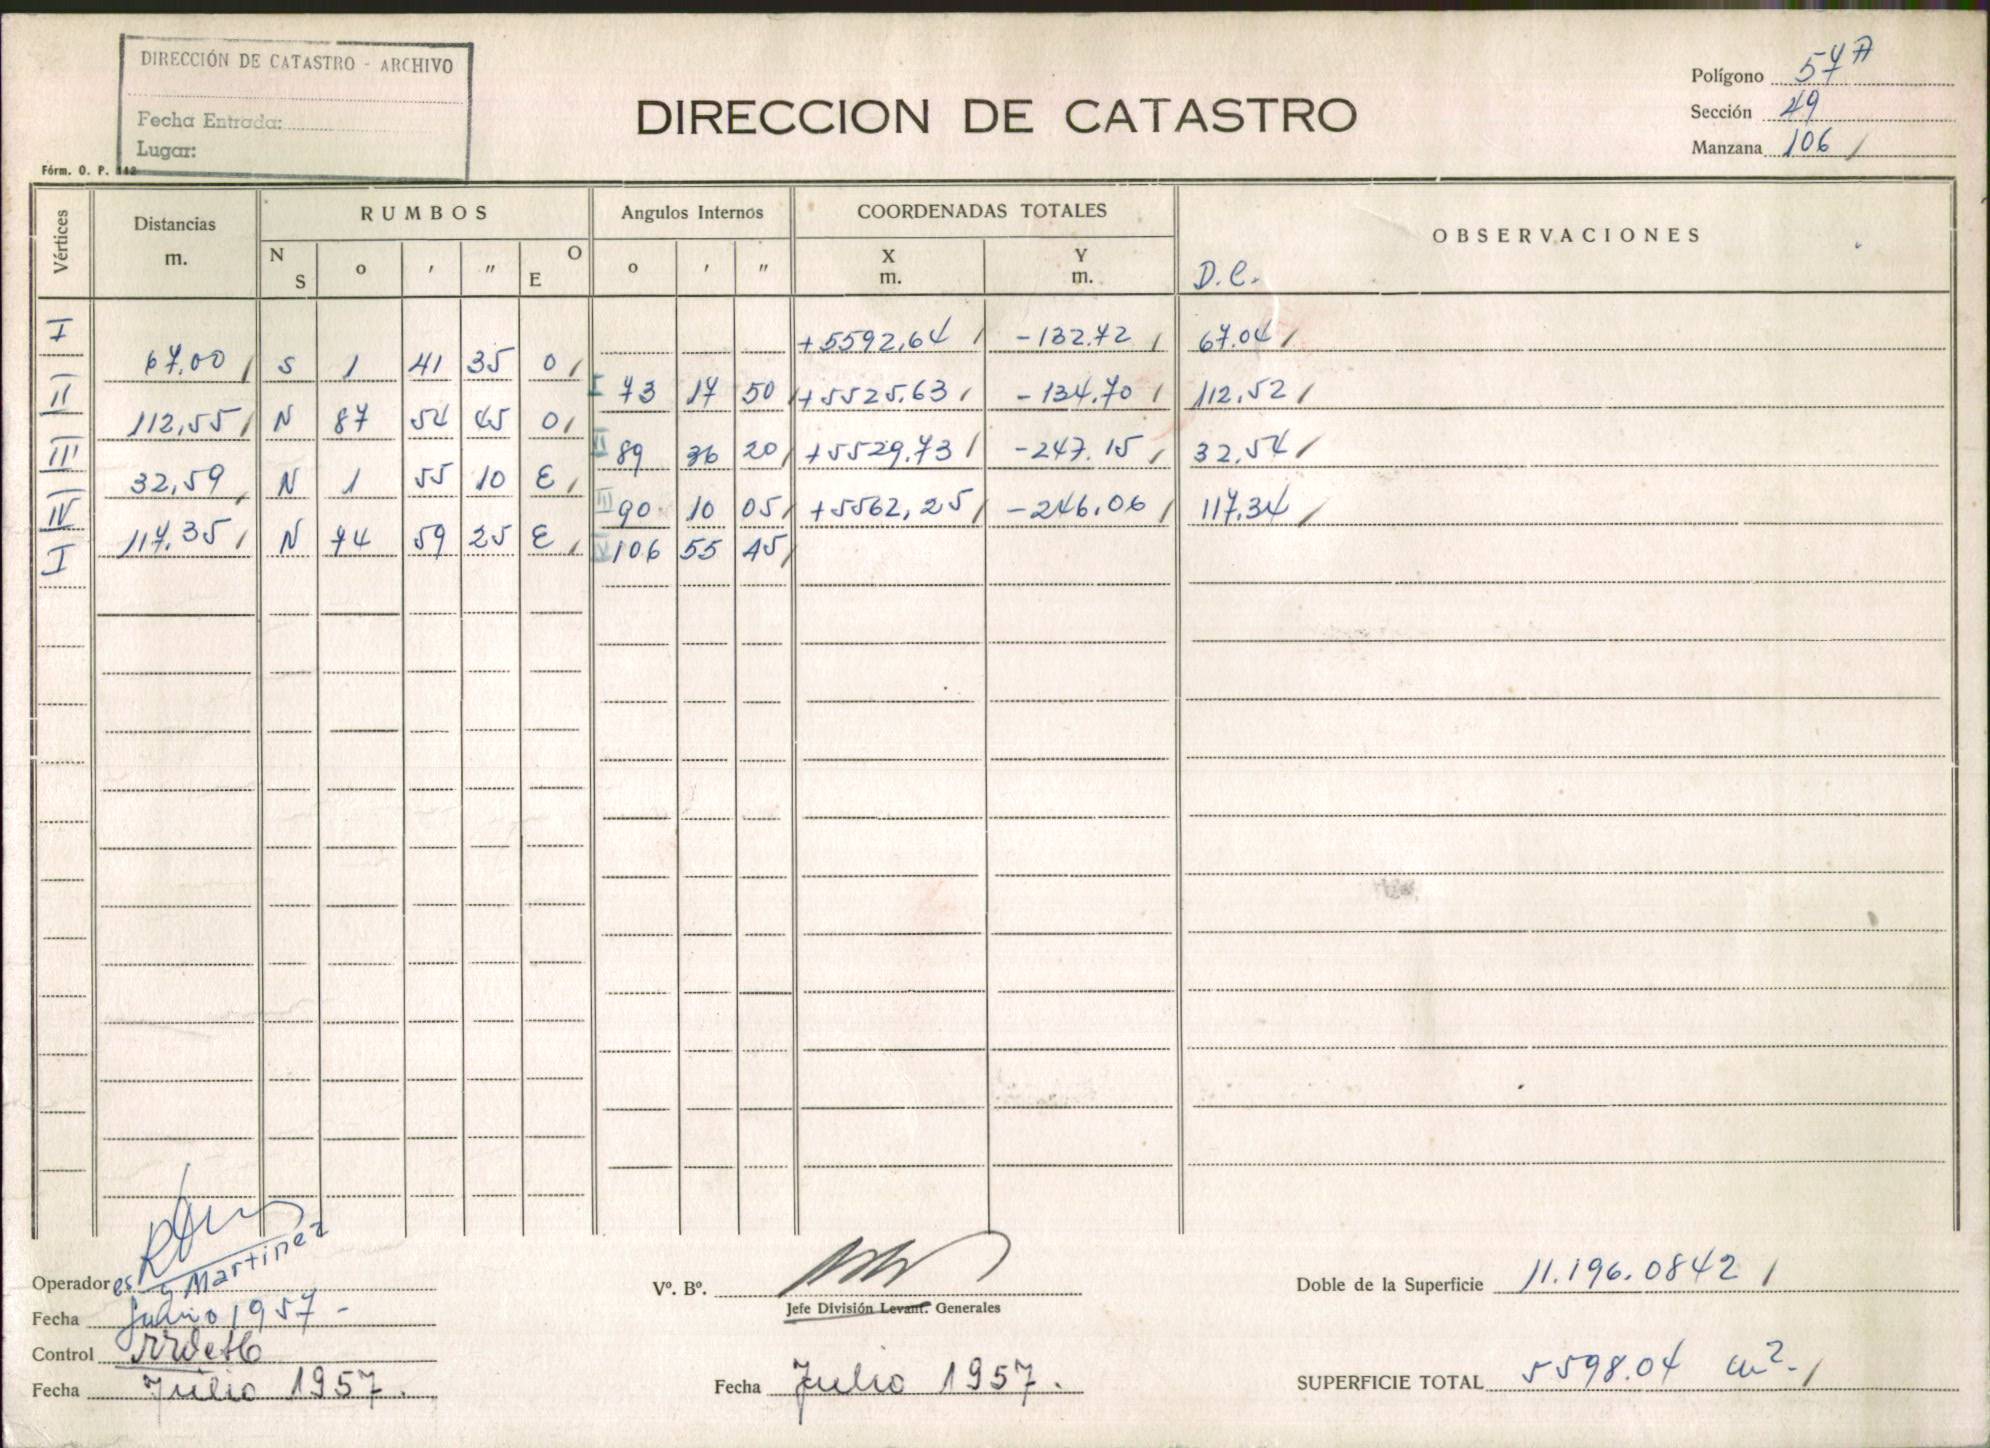 DIRECCIÓN DE CATASTRO - ARCHIVO
Fecha Entrada:
Lugar:
Fórm. O. P. 112
DIRECCION DE CATASTRO
Polígono 57A
Sección 49
Manzana 106 /
Vértices
Distancias m.
RUMBOS
N S o ' " O E
Angulos Internos
o ' "
COORDENADAS TOTALES
X m. Y m.
OBSERVACIONES
D.C.
I +5592,64 / -132.72 / 67.04 /
67,00 / S 1 41 35 O /
II I 73 17 50 / +5525.63 / -134.70 / 112,52 /
112,55 / N 87 54 45 O /
III II 89 36 20 / +5529.73 / -247.15 / 32,54 /
32,59 / N 1 55 10 E /
IV III 90 10 05 / +5562,25 / -246,06 / 117.34 /
117.35 / N 74 59 25 E /
I IV 106 55 45 /
Operadores y Martinez
Fecha 1957 -
Control
Fecha Julio 1957.
Vº. Bº.
Jefe División Levant. Generales
Fecha Julio 1957.
Doble de la Superficie 11.196.0842 /
SUPERFICIE TOTAL 5598.04 m². /